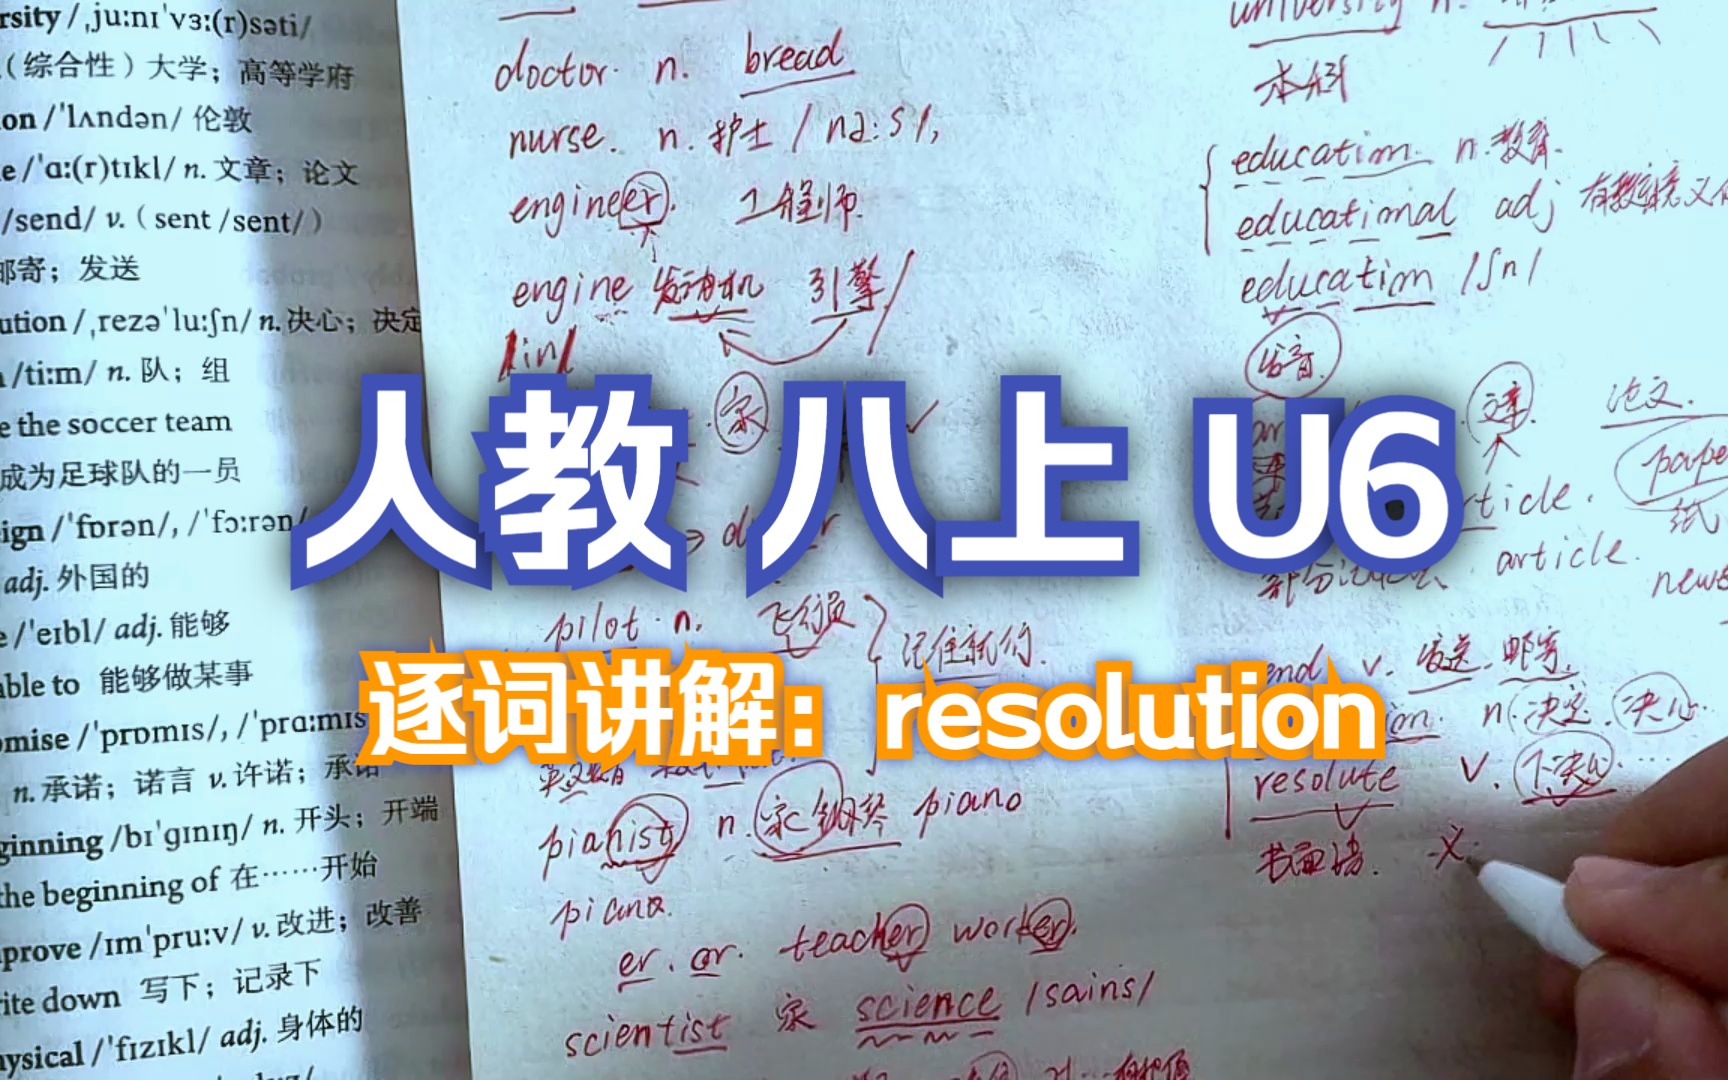 rsity /ˌjuːnɪˈvɜː(r)səti/
(综合性）大学；高等学府
on /ˈlʌndən/ 伦敦
e /ˈɑː(r)tɪkl/ n. 文章；论文
/send/ v.（sent /sent/）
邮寄；发送
ution /ˌrezəˈluːʃn/ n. 决心；决定
/tiːm/ n. 队；组
e the soccer team
成为足球队的一员
ign /ˈfɒrən/, /ˈfɔːrən/
adj. 外国的
e /ˈeɪbl/ adj. 能够
able to 能够做某事
omise /ˈprɒmɪs/, /ˈprɑːmɪs
n. 承诺；诺言 v. 许诺；承诺
ginning /bɪˈɡɪnɪŋ/ n. 开头；开端
the beginning of 在……开始
prove /ɪmˈpruːv/ v. 改进；改善
rite down 写下；记录下
hysical /ˈfɪzɪkl/ adj. 身体的
doctor. n. bread
nurse. n. 护士 / nə:s /,
engineer. 工程师.
engine 发动机 引擎
家
人教 八上 U6
逐词讲解：resolution
pilot. n. 飞行员
记住就行.
pianist n. 家 钢琴 piano
piano.
er. or. teacher worker.
scientist 家 science /sains/
university n.
本科
education. n. 教育.
educational adj 有教育意义
education /ʃn/
发音
文章. 论文.
pape
rticle. 纸
article.
news
end v. 发送. 邮寄.
n. 决定. 决心.
resolute v. 下决心
书面语.